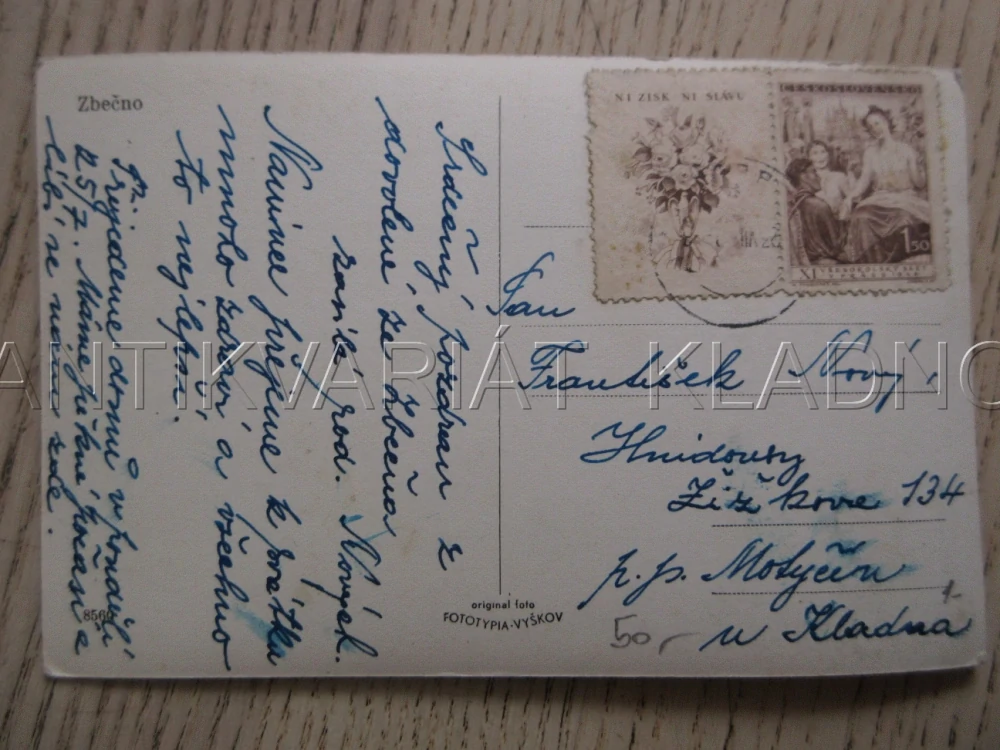 Zbečno
Srdečný pozdrav z
dovolené ze Zbečna
zasílá rod. Nových.
Mamince přejeme k svátku
mnoho zdraví a všechno
to nejlepší.
Přijedeme domů v pondělí
25/7. Máme pěkné počasí a
líbí se nám zde.
8560
original foto
FOTOTYPIA-VYŠKOV
NI ZISK NI SLÁVU
ČESKOSLOVENSKO
1.50
XI.
Pan
František Nový,
Hnidousy
Žižkova 134
p. p. Motyčín
u Kladna
50,-
1-
ANTIKVARIÁT KLADNO